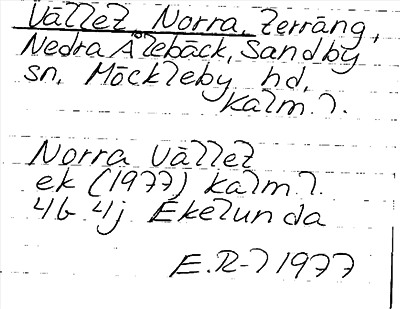 Vället, Norra, terräng,
Nedra Ålebäck, Sandby
sn, Möckleby hd,
Kalm. l.
Norra Vället
ek (1977) Kalm l.
4G 4j Ekelunda
E. R-l 1977